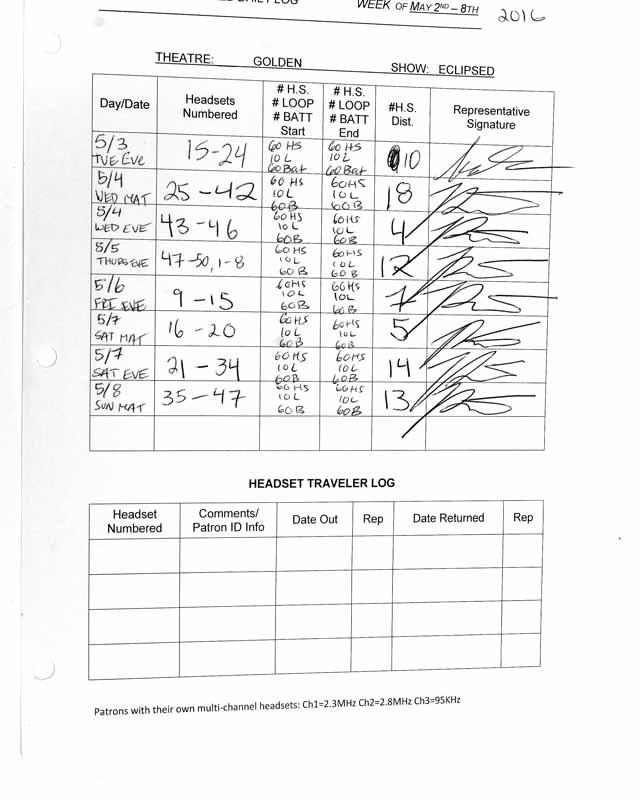 DAILY LOG
WEEK OF MAY 2ND – 8TH 2016
THEATRE: GOLDEN SHOW: ECLIPSED
Day/Date Headsets Numbered # H.S. # LOOP # BATT Start # H.S. # LOOP # BATT End #H.S. Dist. Representative Signature
5/3 TUE EVE 15-24 60 HS 10 L 60 Bat 60 HS 10 L 60 Bat 10
5/4 WED MAT 25-42 60 HS 10L 60B 60HS 10L 60B 18
5/4 WED EVE 43-46 60HS 10L 60B 60HS 10L 60B 4
5/5 THURS EVE 47-50, 1-8 60HS 10L 60B 60HS 10L 60B 12
5/6 FRI EVE 9-15 60HS 10L 60B 60HS 10L 60B 7
5/7 SAT MAT 16-20 60HS 10L 60B 60HS 10L 60B 5
5/7 SAT EVE 21-34 60HS 10L 60B 60HS 10L 60B 14
5/8 SUN MAT 35-47 60HS 10L 60B 60HS 10L 60B 13
HEADSET TRAVELER LOG
Headset Numbered Comments/ Patron ID Info Date Out Rep Date Returned Rep
Patrons with their own multi-channel headsets: Ch1=2.3MHz Ch2=2.8MHz Ch3=95KHz